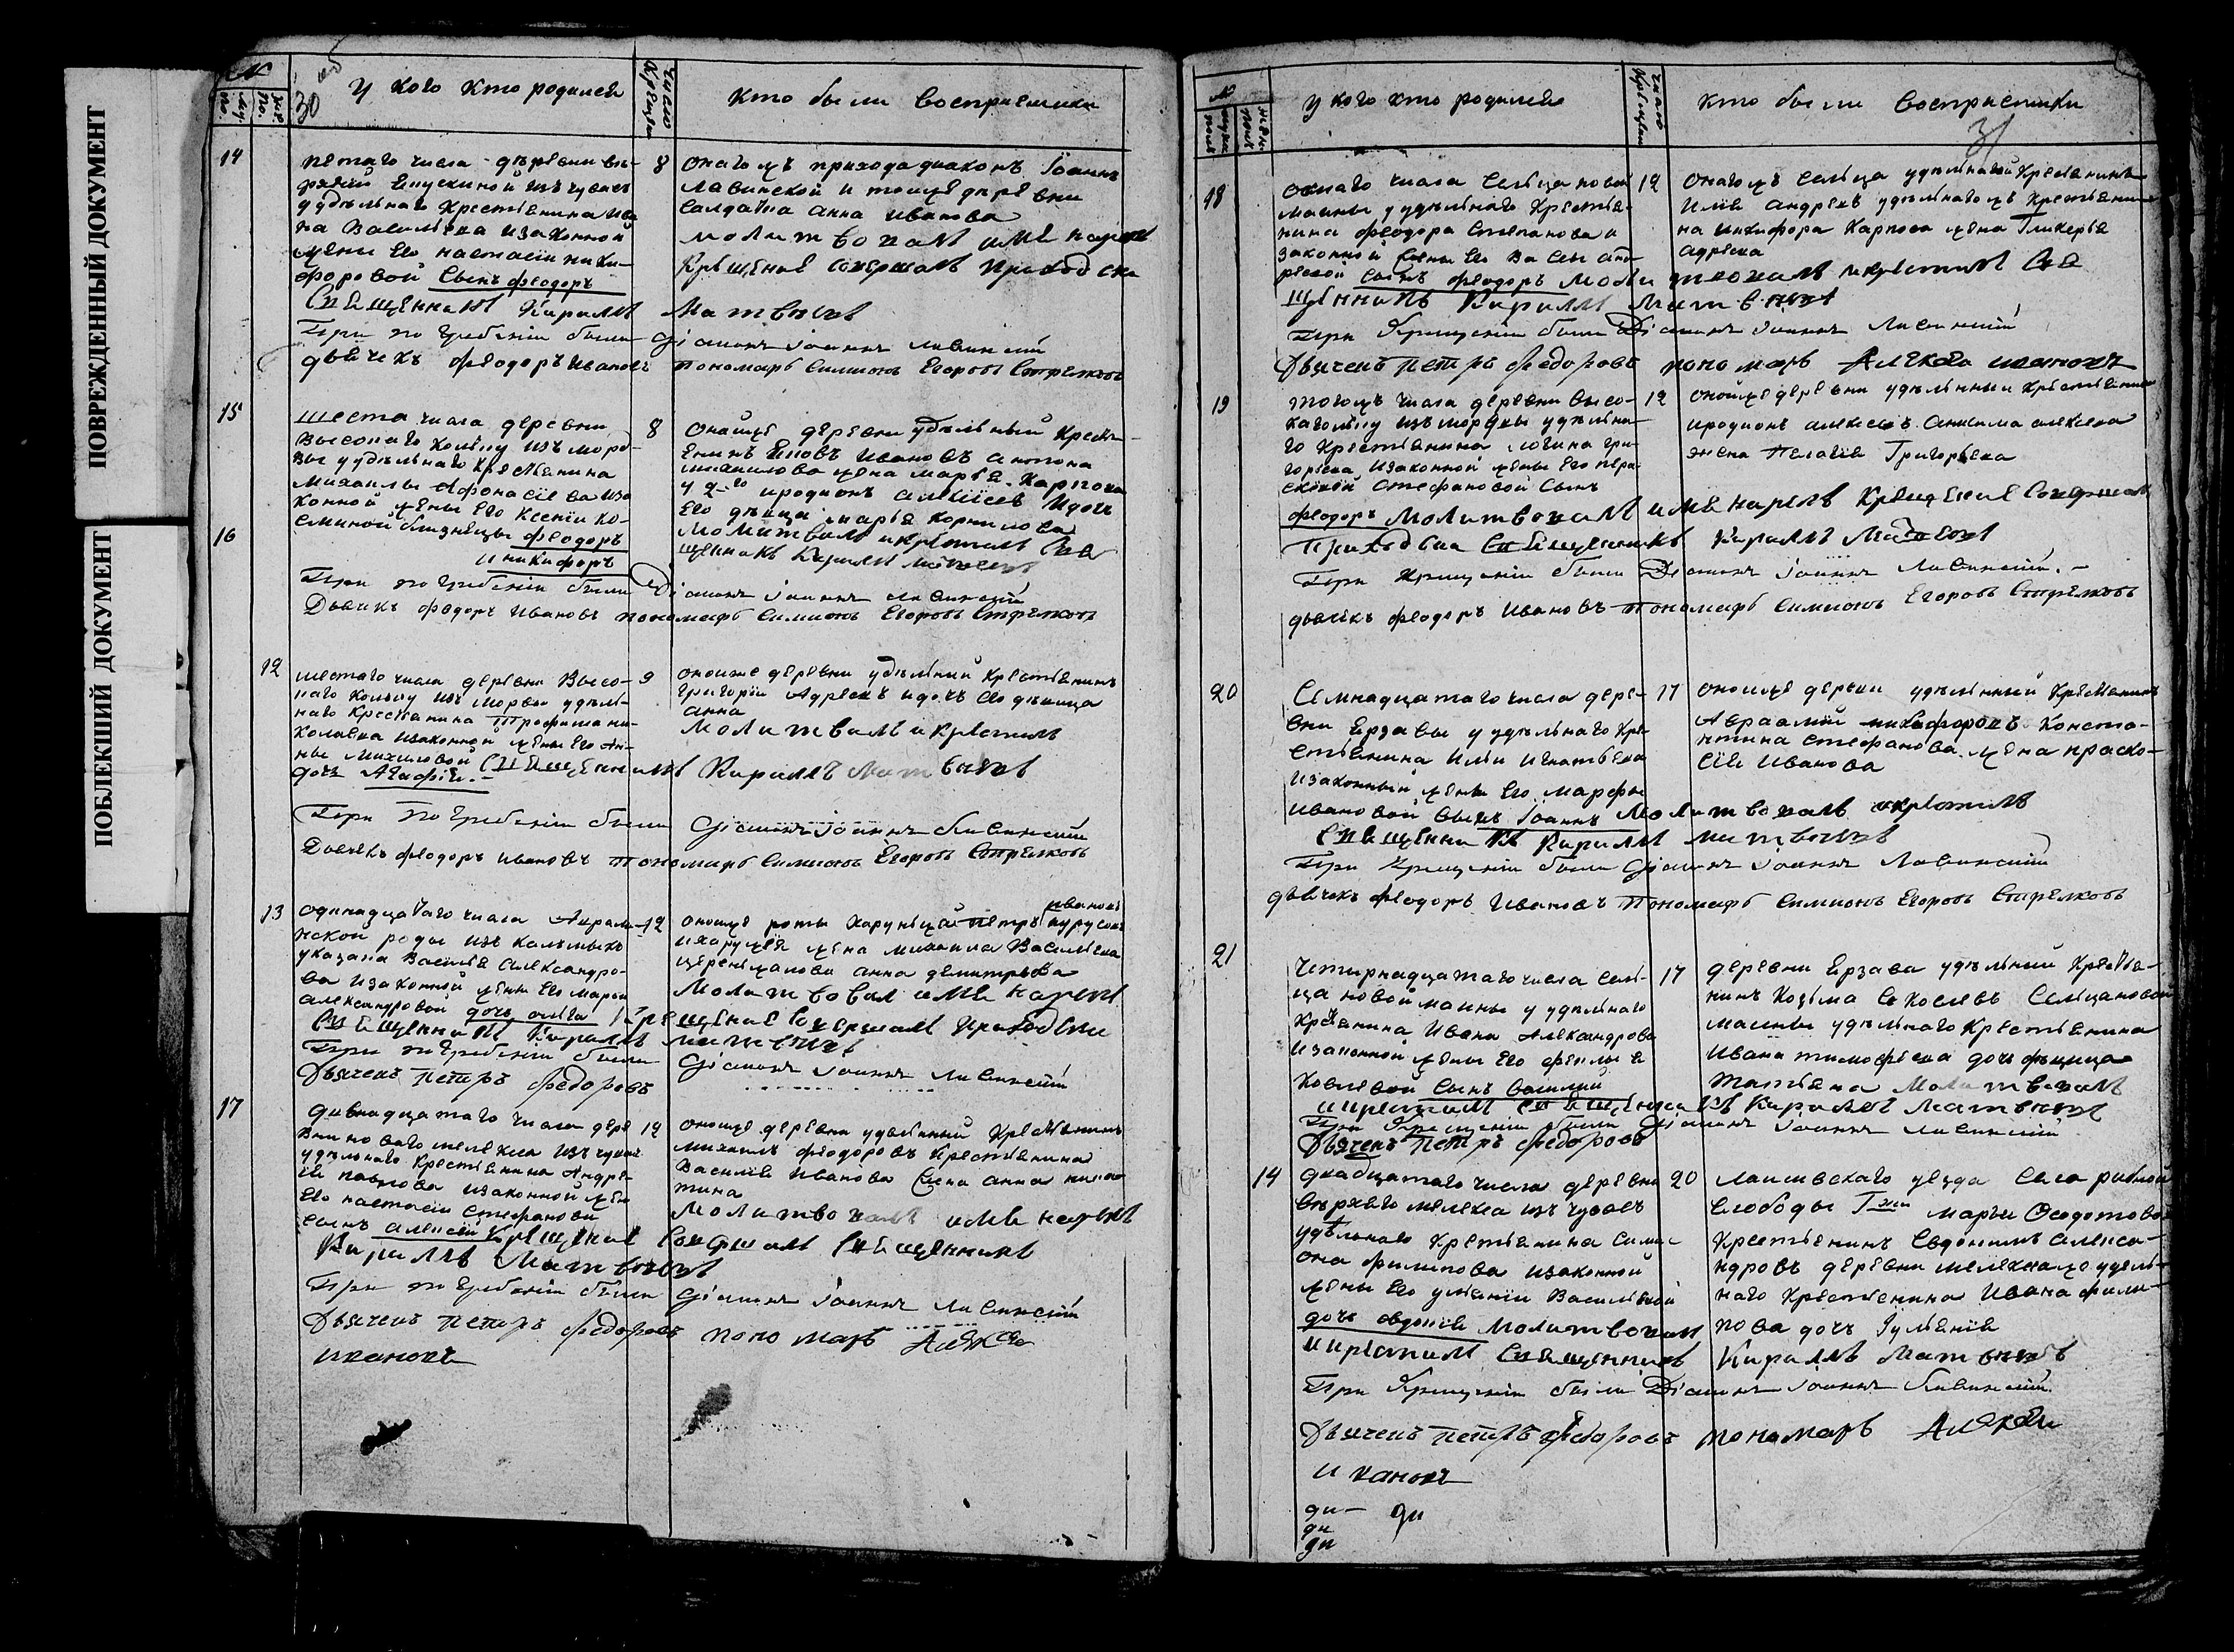 ПОВРЕЖДЕННЫЙ ДОКУМЕНТ
ПОБЛЕКШИЙ ДОКУМЕНТ
№
30
У кого кто родился
Число крещен
Кто были восприемники
14
пятаго числа деревни
изъ чувашъ
удѣльнаго крестьянина Ива
на Васильева и законной
жены его настасіи ники-
форовой сынъ феодоръ
8
онагожъ прихода диаконъ Іоаннъ
Лавинской и тоя же деревни
салдатка анна иванова
молитвовалъ имя нарекъ
крещеніе совершалъ приходски
Священникъ Кириллъ Матвѣевъ
При погребеніи были Діаконъ Іоаннъ Лавинскій
дьячекъ феодоръ Ивановъ пономарь Симионъ Егоровъ Стрелковъ
15
шеста числа деревни
Высокаго Колку изъ морд-
вы у удѣльнаго крестьянина
Михаилы Афонасіева и за
конной жены его Ксеніи Ко-
близнецы феодоръ
16
и никифоръ
8
онойже деревни удѣльный кресть-
янинъ Ивановъ антона
михаилова жена марья Карпова
у 2-го иродионъ алексіевъ и дочь
его дѣвица марья корнилова
молитвовалъ и крестилъ Свя
щенникъ Кириллъ Матвеевъ
При погребеніи были Діаконъ Іоаннъ Лавинскій
Дьячекъ феодоръ Ивановъ пономарь Симионъ Егоровъ Стрелковъ
12
шестаго числа деревни Высо-
каго Колку изъ Мордвы удѣль-
наго крестьянина Трофима ни-
колаева и законной жены его Ан-
ны Михиловой
дочь Агафія
9
онойже деревни удѣльный крестьянинъ
григорій Адреевъ и дочь его дѣвица
анна
молитвовалъ и крестилъ
Священникъ Кириллъ Матвѣевъ
При погребеніи были Діаконъ Іоаннъ Лавинскій
Дьячекъ феодоръ Ивановъ пономарь Симионъ Егоровъ Стрелковъ
13
одинадцатаго числа
роты изъ калмыкъ
Василья Александро-
ва и законной жены его марьи
александровой дочь ольга
12
онойже роты харунжій петръ ивановъ
и харунжія жена михаила Васильева
анна дмитрева
Молитвовал имя нарекъ
крещеніе совершалъ приходски
Священникъ Кириллъ Матвѣевъ
При погребеніи были Діаконъ Іоаннъ Лавинскій
Дьячекъ Петръ Федоровъ
17
двенадцатаго числа дере
вни новаго мелекеса изъ чуваш
удѣльнаго крестьянина Андре-
я павлова и законной жен
его настасіи Стефановй
сынъ алексій
12
онойже деревни удѣльный крестьянинъ
михаилъ феодоровъ крестьянина
Василія Иванова жена анна
молитвовалъ имя нарекъ
крещеніе совершалъ Священникъ
Кириллъ Матвѣевъ
При погребеніи были Діаконъ Іоаннъ Лавинскій
Дьячекъ Петръ Федоровъ пономарь Алексѣй
ивановъ
№
У кого кто родился
Число крещен
Кто были восприемники
31
18
числа сельца новой
маины у удѣльнаго крестья-
нина феодора Степанова и
законной жены его Василисы анд-
реевой сынъ феодоръ
12
онагожъ сельца удѣльной крестьянинъ
Илія андреевъ удѣльнагожъ крестьяни-
на никифора Карпова жена Гликерія
адреева
молитвовалъ и крестилъ Свя
щенникъ Кириллъ Матвѣевъ
При крещеніи были Діаконъ Іоаннъ Лавинскій
Дьячекъ Петръ Федоровъ пономарь Алексѣй ивановъ
19
тогожъ числа деревни Высо-
каго колку изъ мордвы удѣльна-
го крестьянина логина гри-
горьева и законной жены его пара
скевіи стефановой сынъ
феодоръ
12
онойже деревни удѣльный крестьянинъ
иродионъ алексіевъ анисима алексіева
жена Пелагія Григорьева
молитвовалъ имя нарекъ крещеніе совершалъ
Приходски Священникъ Кириллъ Матвѣевъ
При крещеніи были Діаконъ Іоаннъ Лавинскій
дьячекъ феодоръ Ивановъ пономарь Симионъ Егоровъ Стрелковъ
20
Семнадцатаго числа дере-
вни Ерзавы у удѣльнаго кре-
стьянина Ильи Игнатьева
и законный жены его марфы
ивановой сынъ Іоаннъ
17
онойже деревни удѣльный крестьянинъ
Авраамій никифоровъ Конста-
нтина стефанова жена праско-
вія Иванова
молитвовалъ и крестилъ
Священникъ Кириллъ Матвѣевъ
При крещеніи были Діаконъ Іоаннъ Лавинскій
дьячекъ феодоръ Ивановъ пономарь Симионъ Егоровъ Стрелковъ
21
Четырнадцатаго числа сель-
ца новой маины у удѣльнаго
крестьянина Ивана Александрова
и законной жены его
сынъ василий
17
деревни Ерзава удѣльный крестья-
нинъ Козьма Сельца новой
маины удѣльнаго крестьянина
Ивана тимофеева дочь дѣвица
татьяна молитвовалъ
и крестилъ Священникъ Кириллъ Матвѣевъ
При крещеніи были Діаконъ Іоаннъ Лавинскій
Дьячекъ Петръ Федоровъ
14
двадцатаго числа деревни
мелекеса изъ чувашъ
удѣльнаго крестьянина Сими-
она филипова и законной
жены его Васильевой
дочь авдотія
20
лаишевскаго уезда села рыбной
слободы Г-жи марьи Федотовой
крестьянинъ Евдокимъ алекса-
ндровъ деревни мелекеса удель-
наго крестьянина Ивана фили-
пова дочь Іулянія
молитвовалъ
и крестилъ Священникъ Кириллъ Матвѣевъ
При крещеніи были Діаконъ Іоаннъ Лавинскій
Дьячекъ Петръ Федоровъ пономарь Алексѣй
ивановъ